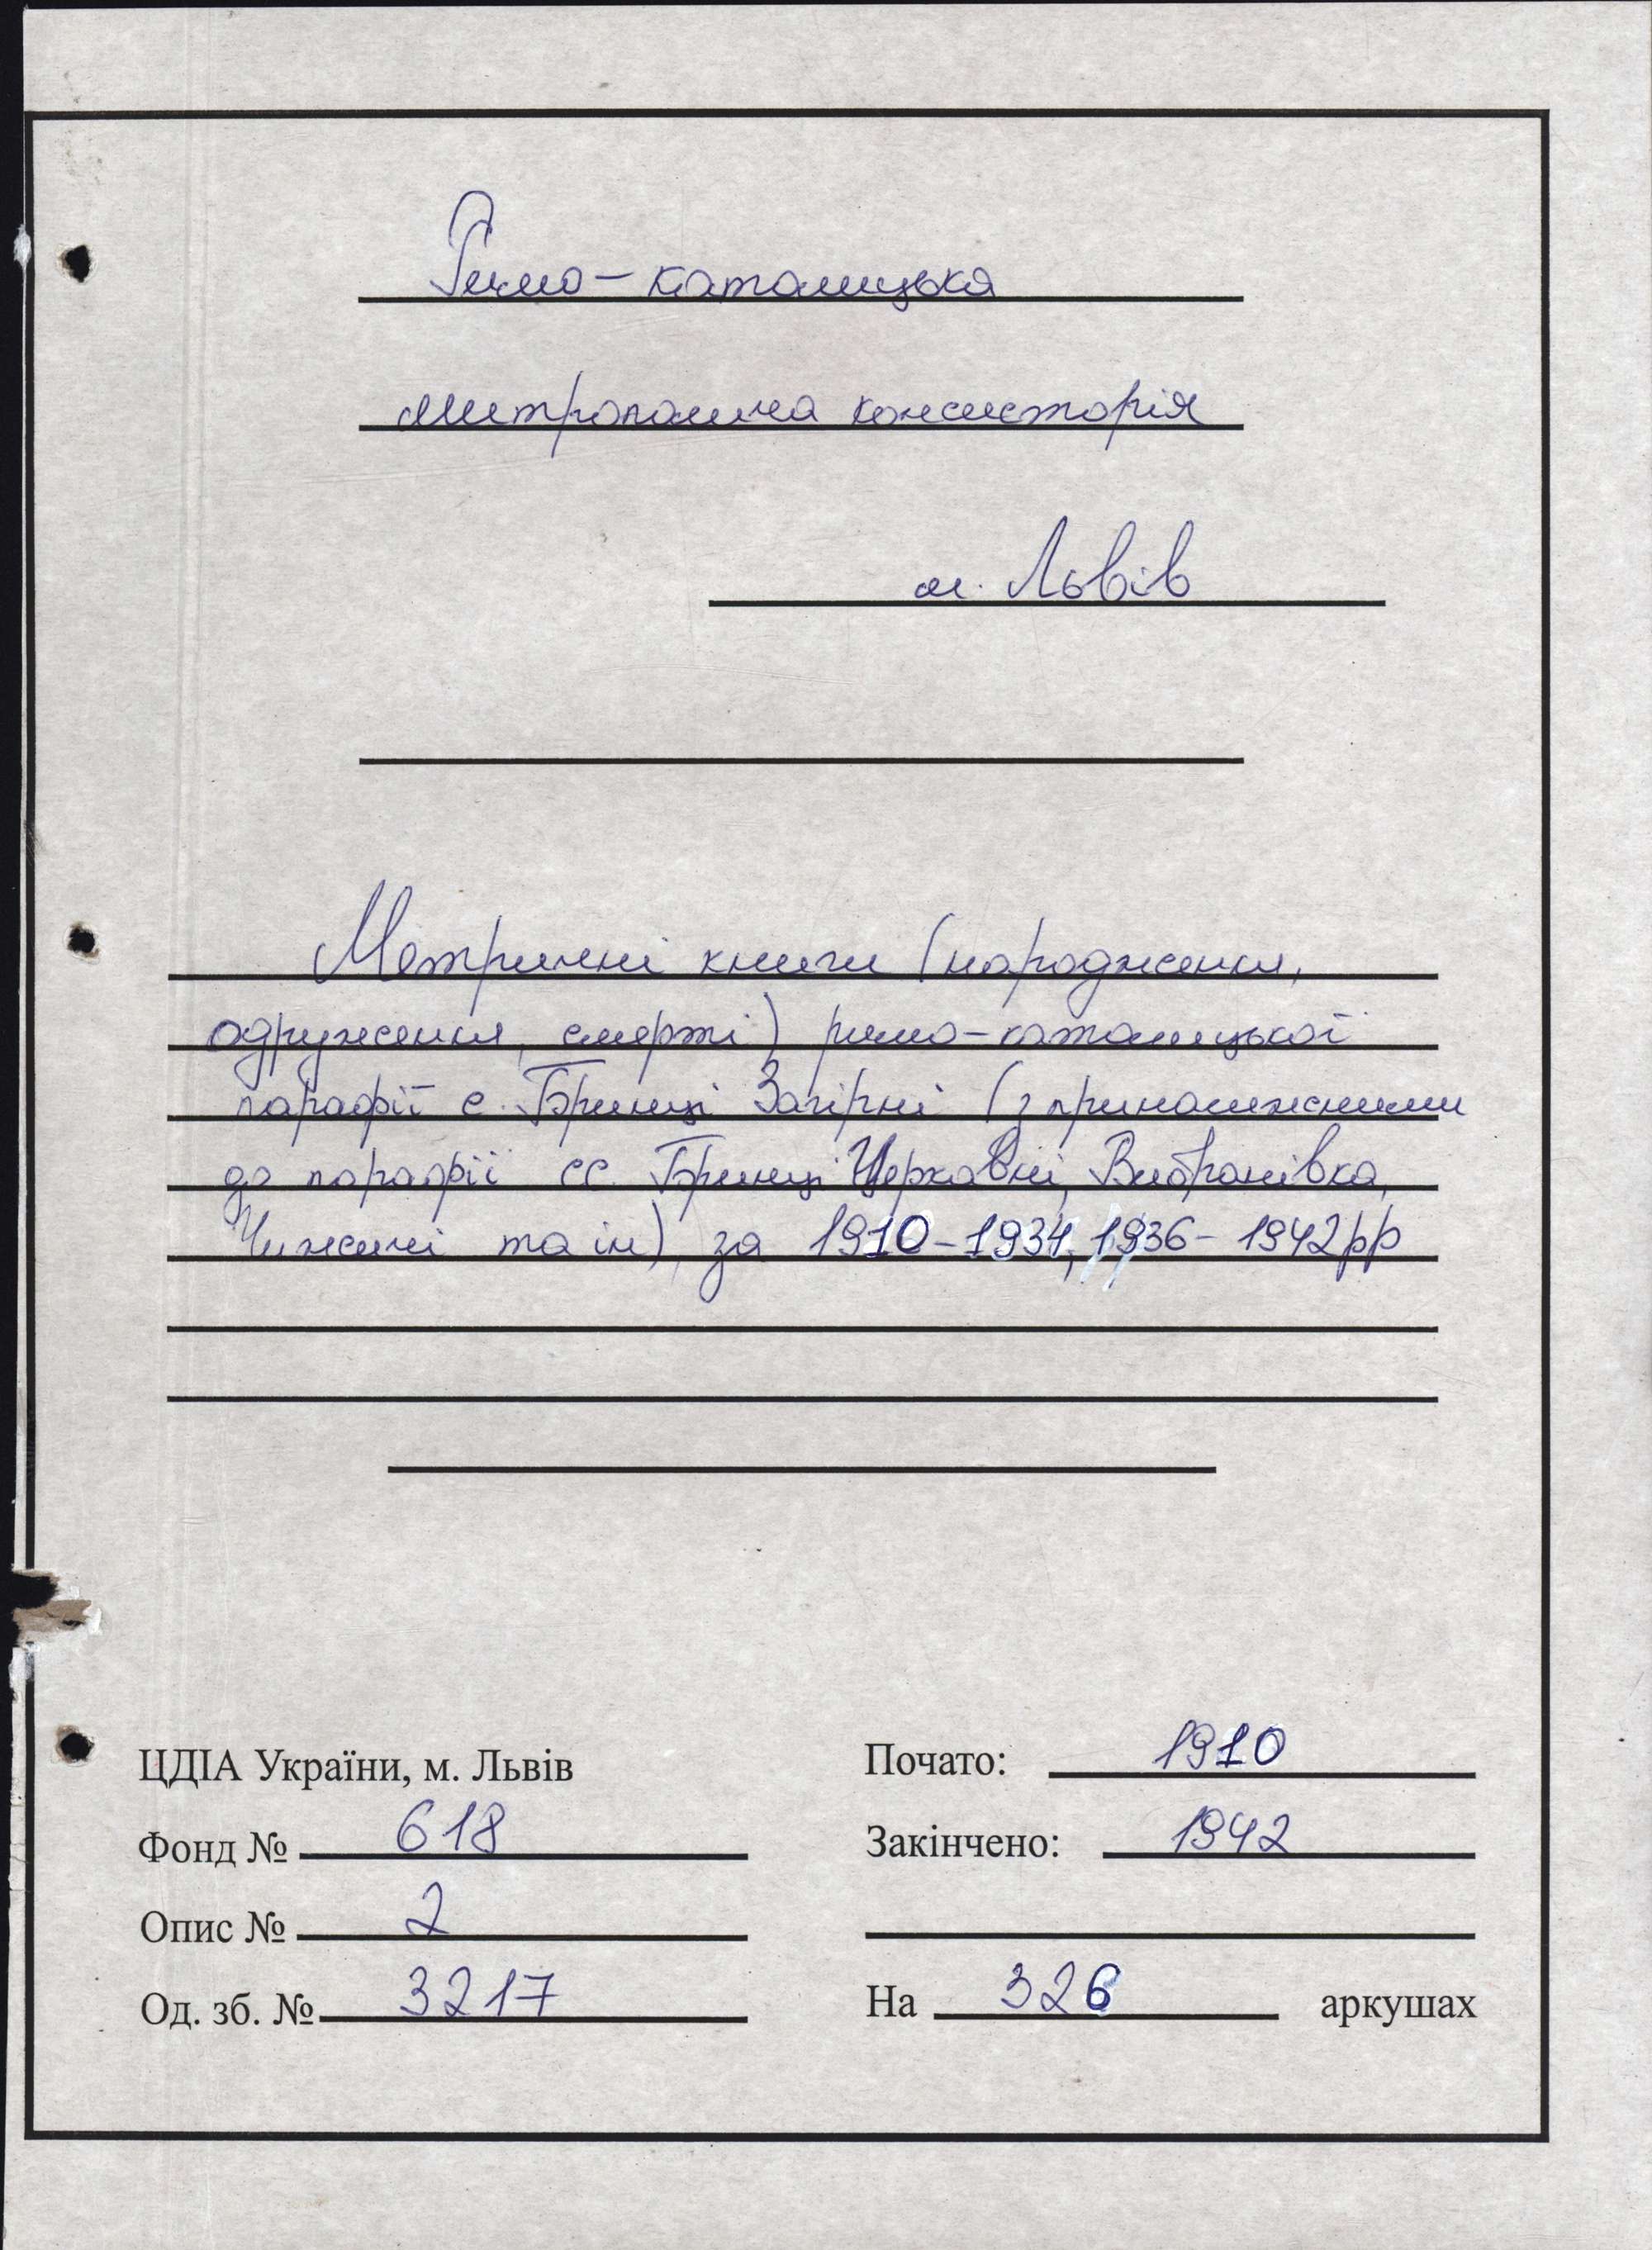 Римо-католицька
митрополича консисторія
м. Львів
Метричні книги (народження,
одруження, смерті) римо-католицької
парафії с. Бринці Загірні (з приналежними
до парафії сс. Бринці Церковні, Вибранівка,
Чижичі та ін) за 1910-1934, 1936-1942рр
ЦДІА України, м. Львів
Почато: 1910
Фонд № 618
Закінчено: 1942
Опис № 2
Од. зб. № 3217
На 326 аркушах